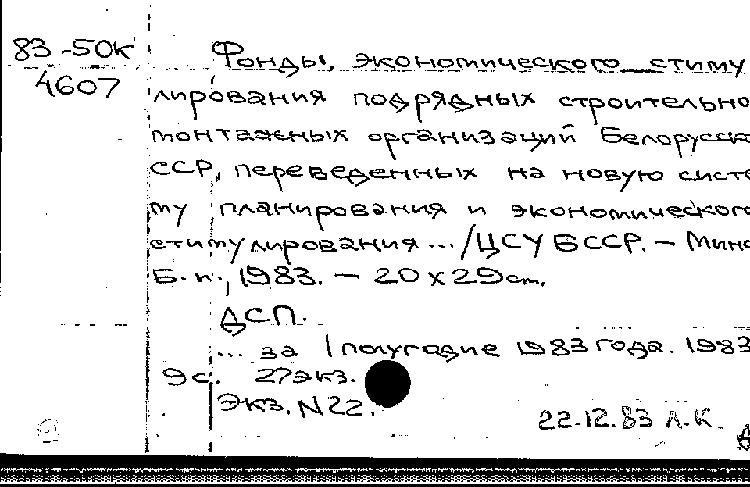 83-50к
4607
Фонды, экономического стиму
лирования подрядных строительно
монтажных организаций Белорусск
ССР, переведенных на новую систе
му планирования и экономического
стимулирования... /ЦСУ БССР. – Минс
Б.и., 1983. – 20 х 29 см.
ДСП.
... за 1 полугодие 1983 года. 1983
9 с. 27 экз.
Экз. N 22.
22.12.83 Л.К.